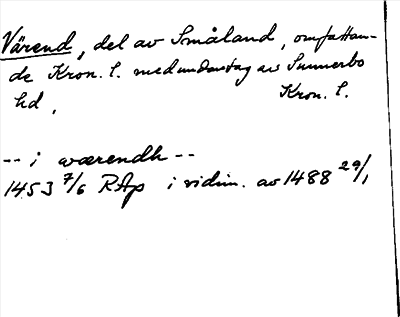 Värend, del av Småland, omfattan-
de Kron. l. med undantag av Sunnerbo
hd. Kron. l.
-- i wærendh --
1453 7/6 RAp i vidim. av 1488 29/1